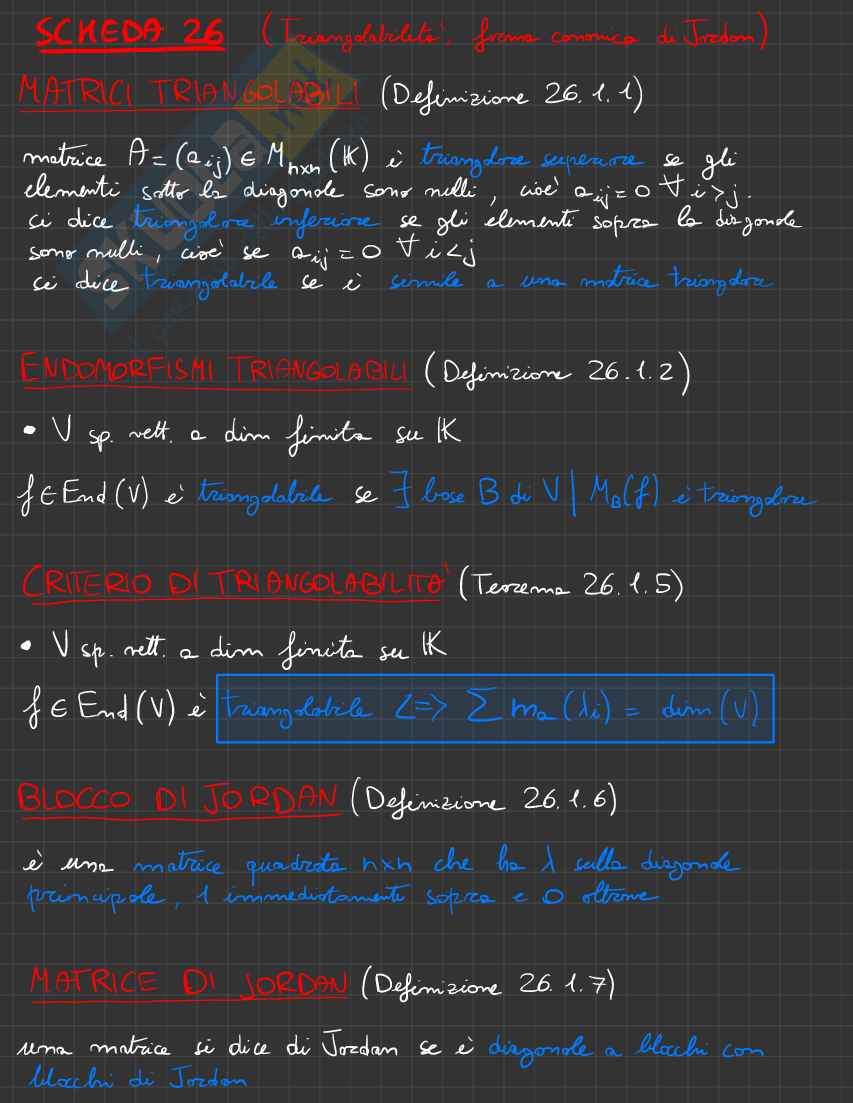 SCHEDA 26 (Triangolabilità, forma canonica di Jordan)
MATRICI TRIANGOLABILI (Definizione 26.1.1)
matrice A=(aij) ∈ Mnxn (K) è triangolare superiore se gli
elementi sotto la diagonale sono nulli, cioè aij=0 ∀ i>j.
si dice triangolare inferiore se gli elementi sopra la diagonale
sono nulli, cioè se aij=0 ∀ i<j
si dice triangolabile se è simile a una matrice triangolare
ENDOMORFISMI TRIANGOLABILI (Definizione 26.1.2)
• V sp. vett. a dim finita su K
f ∈ End (V) è triangolabile se ∃ base B di V | MB(f) è triangolare
CRITERIO DI TRIANGOLABILITA' (Teorema 26.1.5)
• V sp. vett. a dim finita su K
f ∈ End (V) è triangolabile <=> ∑ ma (λi) = dim (V)
BLOCCO DI JORDAN (Definizione 26.1.6)
è una matrice quadrata nxn che ha λ sulla diagonale
principale, 1 immediatamenti sopra e 0 altrove
MATRICE DI JORDAN (Definizione 26.1.7)
una matrice si dice di Jordan se è diagonale a blocchi con
blocchi di Jordan